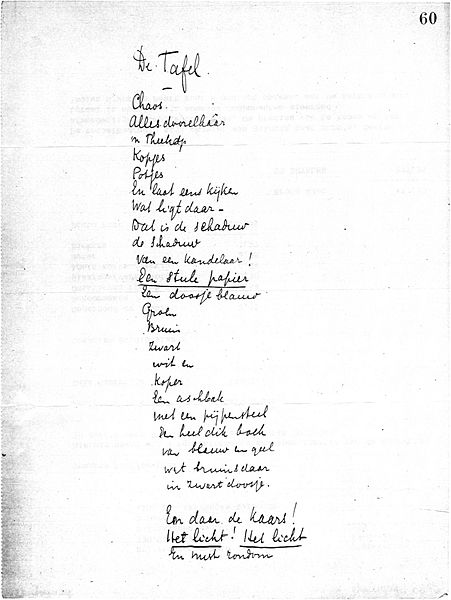 60
De Tafel.
–
Chaos.
Alles doorelkâar
in Theekop
Kopjes
Potjes
En laat eens kijken
Wat ligt daar –
Dat is de schaduw
de schaduw
van een kandelaar!
Een stuk papier
Een doosje blauw
Groen
Bruin
Zwart
wit en
Koper
Een aschbak
met een pijpensteel
Een heel dik boek
van blauw en geel
wit bruins daar
in zwart doosje.
En daar de Kaars!
Het licht! Het licht
En mist rondom